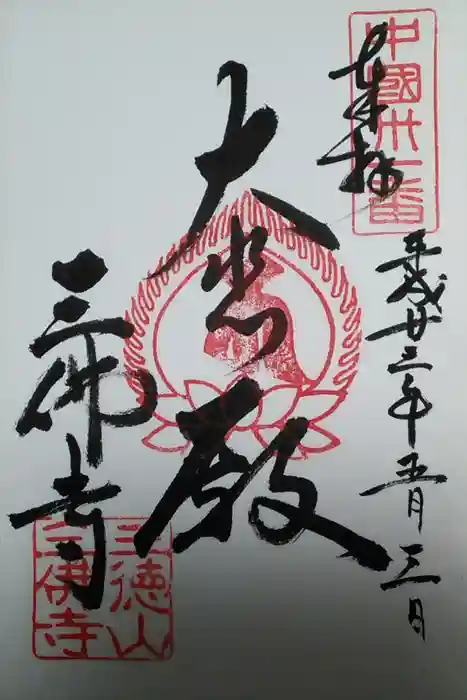 中國卅一番
奉拝
平成廿三年五月三日
大悲殿
三佛寺
三徳山
三佛寺